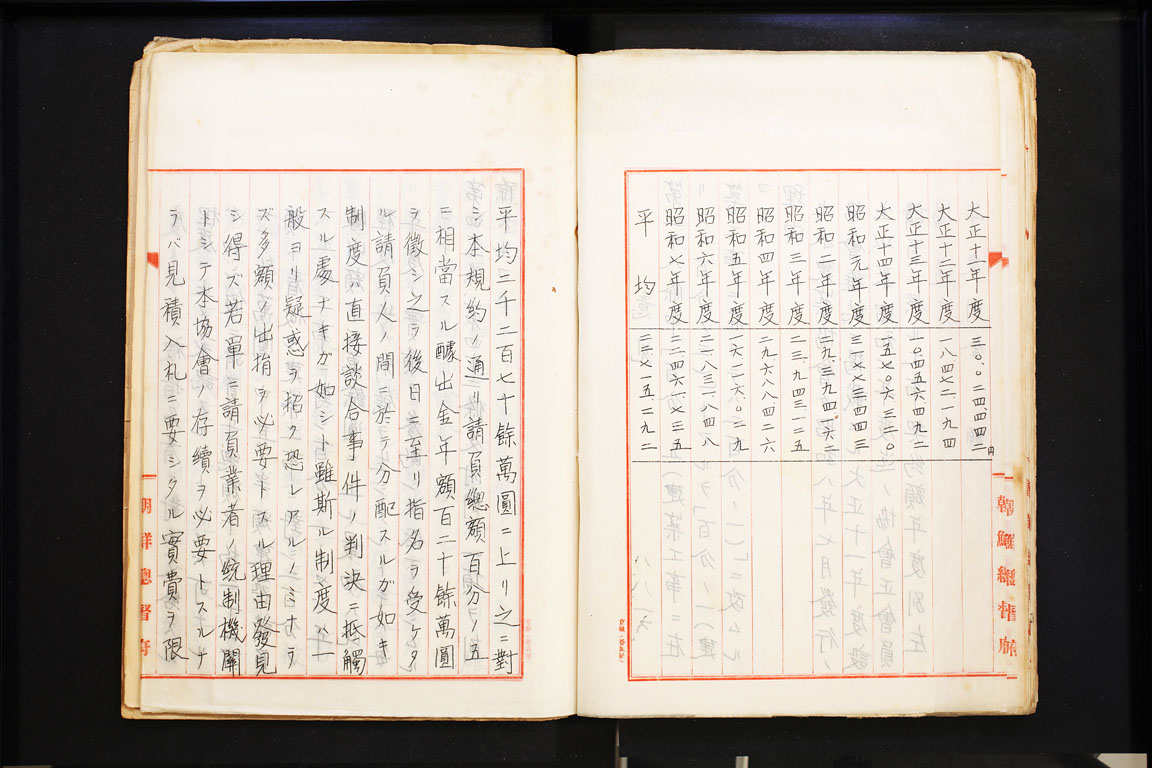 大正十一年度 三〇.〇二四.四四二円
大正十二年度 一八.四七二.一九四
大正十三年度 一〇.四五六.四九二
大正十四年度 一五.七〇六.三二〇
昭和元年度 三一.七七三.四四三
昭和二年度 二九.三九四.一六二
昭和三年度 二三.九四三.一二五
昭和四年度 二九.六八八.四二六
昭和五年度 一六.一二六.〇二九
昭和六年度 二一.八三一.八四八
昭和七年度 二二四六一.七三五
平均 二二七一五.二九二
平均二千二百七十餘萬圓ニ上リ之ニ對
シ本規約ノ通リ請負總額百分ノ五
ニ相當スル醵出金年額百二十餘萬圓
ヲ徵シ之ヲ後日ニ至リ指名ヲ受ケタ
ル請負人ノ間ニ於テ分配スルガ如キ
制度ハ直接談合事件ノ判決ニ抵觸
スル處ナキガ如シト雖斯ル制度ハ一
般ヨリ疑惑ヲ招ク恐レアルノミナラ
ズ多額ノ出捐ヲ必要トスル理由發見
シ得ズ若單ニ請負業者ノ統制機關
トシテ本協會ノ存續ヲ必要トスルナ
ラバ見積入札ニ要シタル實費ヲ限
朝鮮總督府